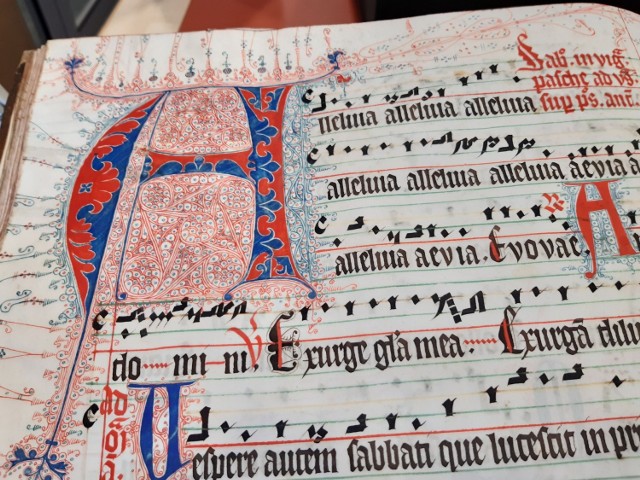 Sab̃. in vig̃.
pasche ad vẽ
sup̃ p̃s. ant̃.
Alleluia alleluia alleluia
alleluia alleluia alleluia. aevia. A
alleluia aevia. Evovae.
do mi ni. V̷ Exurge gl̃a mea. Exurgã dilu
Vespere autem sabbati que lucescit in pri